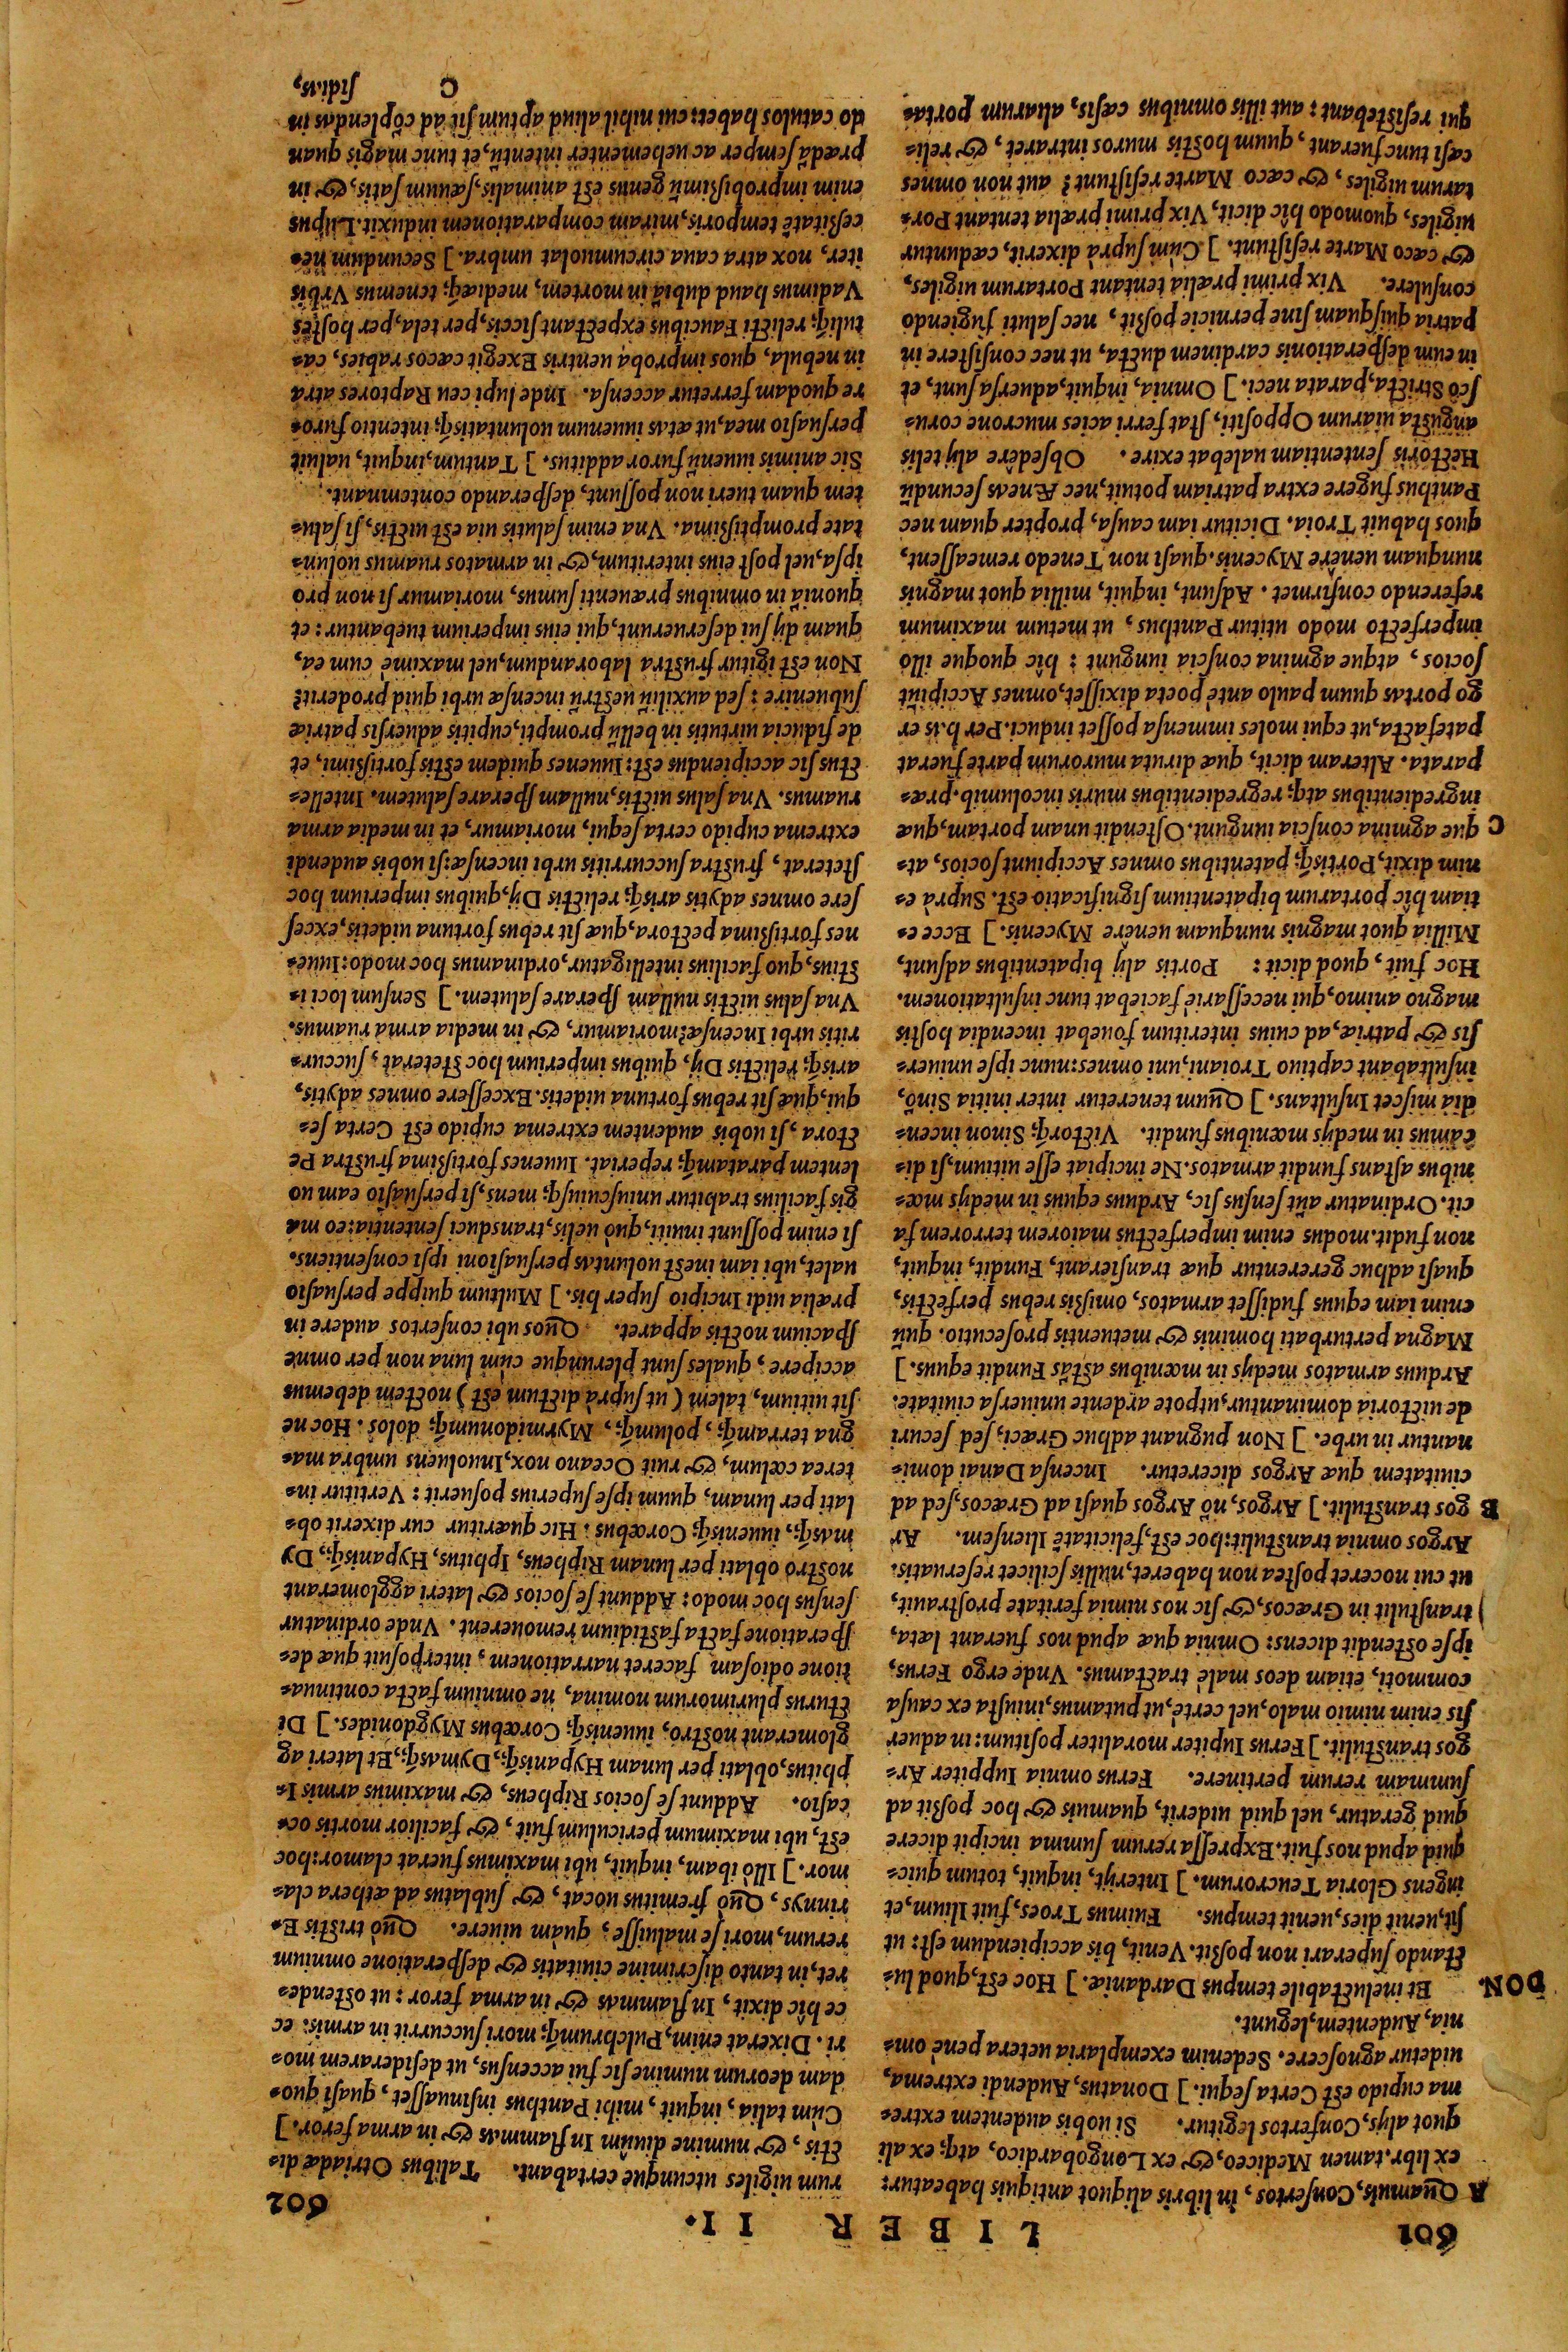 601 LIBER II. 602
A Quamuis, Consertos, in libris aliquot antiquis habeatur:
ex libr. tamen Mediceo, & ex Longobardico, atq; ex ali
quot alijs, Confertos legitur. Si uobis audentem extre=
ma cupido est Certa sequi.] Donatus, Audendi extrema,
uidetur agnoscere. Sed enim exemplaria uetera penè om=
nia, Audentem, legunt.
DON. Et ineluctabile tempus Dardaniæ.] Hoc est, quod lu=
ctando superari non possit. Venit, bis accipiendum est: ut
sit, uenit dies, uenit tempus. Fuimus Troes, fuit Ilium, et
ingens Gloria Teucrorum.] Interijt, inquit, totum quic=
quid apud nos fuit. Expressa rerum summa incipit dicere
quid geratur, uel quid uiderit, quamuis & hoc possit ad
summam rerum pertinere. Ferus omnia Iuppiter Ar=
gos transtulit.] Ferus Iupiter moraliter positum: in aduer
sis enim nimio malo, uel certè, ut putamus, iniusta ex causa
commoti, etiam deos malè tractamus. Vnde ergo Ferus,
ipse ostendit dicens: Omnia quæ apud nos fuerant læta,
transtulit in Græcos, & sic nos nimia feritate prostrauit,
ut cui noceret postea non haberet, nullis scilicet reseruatis.
Argos omnia transtulit: hoc est, felicitatē Iliensem. Ar
B gos transtulit.] Argos, nō Argos quasi ad Græcos, sed ad
ciuitatem quæ Argos diceretur. Incensa Danai domi=
nantur in urbe.] Non pugnant adhuc Græci, sed securi
de uictoria dominantur, utpote ardente uniuersa ciuitate.
Arduus armatos medijs in mœnibus astās Fundit equus.]
Magna perturbati hominis & metuentis prosecutio. quū
enim iam equus fudisset armatos, omissis rebus perfectis,
quasi adhuc gererentur quæ transierant, Fundit, inquit,
non fudit. modus enim imperfectus maiorem terrorem fa
cit. Ordinatur aūt sensus sic, Arduus equus in medijs mœ=
nibus astans fundit armatos. Ne incipiat esse uitium, si di=
camus in medijs mœnibus fundit. Victorq; Sinon incen=
dia miscet Insultans.] Quum teneretur inter initia Sinō,
insultabant captiuo Troiani, uni omnes: nunc ipse uniuer=
sis & patriæ, ad cuius interitum fouebat incendia hostis
magno animo, qui necessariè faciebat tunc insultationem.
Hoc fuit, quod dicit: Portis alij bipatentibus adsunt,
Millia quot magnis nunquam uenere Mycenis.] Ecce e=
tiam hîc portarum bipatentium significatio est. Suprà e=
nim dixit, Portisq; patentibus omnes Accipiunt socios, at=
C que agmina conscia iungunt. Ostendit unam portam, quæ
ingredientibus atq; regredientibus muris incolumib. præ=
parata. Alteram dicit, quæ diruta murorum parte fuerat
patefacta, ut equi moles immensa posset induci. Per has er
go portas quum paulo antè poeta dixisset, omnes Accipiūt
socios, atque agmina conscia iungunt: hîc quoque illo
imperfecto modo utitur Panthus, ut metum maximum
referendo confirmet. Adsunt, inquit, millia quot magnis
nunquam uenêre Mycenis. quasi non Tenedo remeassent,
quos habuit Troia. Dicitur iam causa, propter quam nec
Panthus fugere extra patriam potuit, nec Æneas secundū
Hectoris sententiam ualebat exire. Obsedêre alij telis
angusta uiarum Oppositi, stat ferri acies mucrone corus=
sco Stricta, parata neci.] Omnia, inquit, aduersa sunt, et
in eum desperationis cardinem ducta, ut nec consistere in
patria quisquam sine pernicie possit, nec saluti fugiendo
consulere. Vix primi prælia tentant Portarum uigiles,
& cæco Marte resistunt.] Cùm suprà dixerit, cæduntur
uigiles, quomodo hîc dicit, Vix primi prælia tentant Por=
tarum uigiles, & cæco Marte resistunt? aut non omnes
cæsi tunc fuerant, quum hostis muros intraret, & reli=
qui resistebant: aut illis omnibus cæsis, aliarum porta=
rum uigiles utcunque certabant. Talibus Otriadæ di=
ctis, & numine diuûm In flammas & in arma feror.]
Cùm talia, inquit, mihi Panthus insinuasset, quasi quo=
dam deorum numine sic fui accensus, ut desiderarem mo=
ri. Dixerat enim, Pulchrumq; mori succurrit in armis: ec
ce hîc dixit, In flammas & in arma feror: ut ostende=
ret, in tanto discrimine ciuitatis & desperatione omnium
rerum, mori se maluisse, quàm uiuere. Quò tristis E=
rinnys, Quò fremitus uocat, & sublatus ad æthera cla=
mor.] Illò ibam, inquit, ubi maximus fuerat clamor: hoc
est, ubi maximum periculum fuit, & facilior mortis oc=
casio. Addunt se socios Ripheus, & maximus armis I=
phitus, oblati per lunam Hypanisq;, Dymasq;, Et lateri ag
glomerant nostro, iuuenisq; Corœbus Mygdonides.] Di
cturus plurimorum nomina, ne omnium facta continua=
tione odiosam faceret narrationem, interposuit quæ de=
speratione facta fastidium remouerent. Vnde ordinatur
sensus hoc modo: Addunt se socios & lateri agglomerant
nostro oblati per lunam Ripheus, Iphitus, Hypanisq;, Dy
masq;, iuuenisq; Corœbus: Hic quæritur cur dixerit ob=
lati per lunam, quum ipse superius posuerit: Vertitur in=
terea cœlum, & ruit Oceano nox, Inuoluens umbra ma=
gna terramq;, polumq;, Myrmidonumq; dolos. Hoc ne
sit uitium, talem (ut suprà dictum est) noctem debemus
accipere, quales sunt plerunque cùm luna non per omne
spacium noctis apparet. Quos ubi confertos audere in
prælia uidi Incipio super his.] Multum quippe persuasio
ualet, ubi iam inest uoluntas persuasioni ipsi consentiens.
si enim possunt inuiti, quò uelis, transduci sententia: eo ma
gis facilius trahitur uniuscuiusq; mens, si persuasio eam uo
lentem paratamq; reperiat. Iuuenes fortissima frustra Pe
ctora, si uobis audentem extrema cupido est Certa se=
qui, quæ sit rebus fortuna uidetis. Excessere omnes adytis,
arisq; relictis Dij, quibus imperium hoc steterat, succur=
ritis urbi Incensæ: moriamur, & in media arma ruamus.
Vna salus uictis nullam sperare salutem.] Sensum loci i=
stius, quo facilius intelligatur, ordinamus hoc modo: Iuue=
nes fortissima pectora, quæ sit rebus fortuna uidetis, excess
sere omnes adytis arisq; relictis Dij, quibus imperium hoc
steterat, frustra succurritis urbi incensæ: si uobis audendi
extrema cupido certa sequi, moriamur, et in media arma
ruamus. Vna salus uictis, nullam sperare salutem. Intelle=
ctus sic accipiendus est: Iuuenes quidem estis fortissimi, et
de fiducia uirtutis in bellū prompti, cupitis aduersis patriæ
subuenire: sed auxiliū uestrū incensæ urbi quid proderit?
Non est igitur frustra laborandum, uel maxime cum ea,
quam dij sui deseruerunt, qui eius imperium tuebantur: et
quoniā in omnibus præuenti sumus, moriamur si non pro
ipsa, uel post eius interitum, & in armatos ruamus uolun=
tate promptissima. Vna enim salutis uia est uictis, si salu=
tem quam tueri non possunt, desperando contemnant.
Sic animis iuuenū furor additus.] Tantum, inquit, ualuit
persuasio mea, ut ætas iuuenum uoluntatisq; intentio furo=
re quodam ferretur accensa. Inde lupi ceu Raptores atra
in nebula, quos improba uentris Exegit cæcos rabies, ca=
tuliq; relicti Faucibus expectant siccis, per tela, per hostes
Vadimus haud dubiā in mortem, mediæq; tenemus Vrbis
iter, nox atra caua circumuolat umbra.] Secundum ne=
cessitatē temporis, miram comparationem induxit. Lupus
enim improbissimū genus est animalis, sæuum satis, & in
prædā semper ac uehementer intentū, et tunc magis quan
do catulos habet: cui nihil aliud aptum sit ad cōplendas in
C sidias,